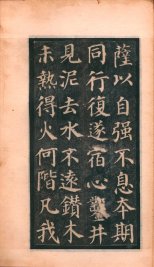 薩以自强不息本期
同行復遂宿心鑿井
見泥去水不遠鑽木
未熱得火何階凡我